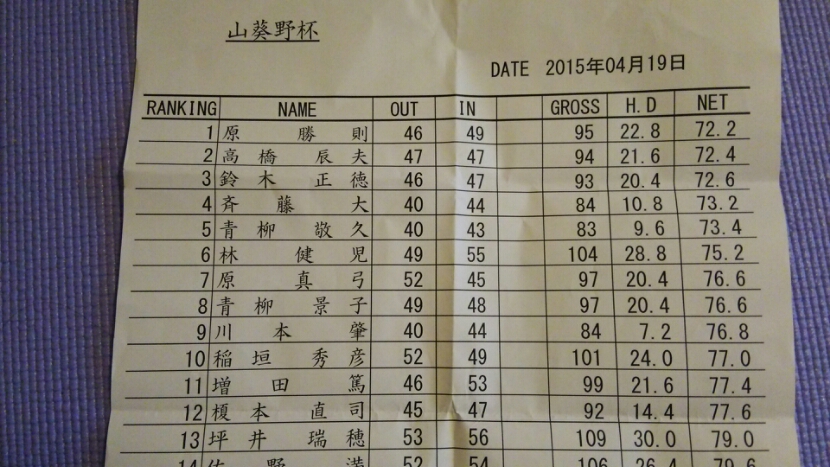 山葵野杯
DATE 2015年04月19日
RANKING NAME OUT IN GROSS H.D NET
1 原 勝則 46 49 95 22.8 72.2
2 高橋 辰夫 47 47 94 21.6 72.4
3 鈴木 正徳 46 47 93 20.4 72.6
4 斉藤 大 40 44 84 10.8 73.2
5 青柳 敬久 40 43 83 9.6 73.4
6 林 健児 49 55 104 28.8 75.2
7 原 真弓 52 45 97 20.4 76.6
8 青柳 景子 49 48 97 20.4 76.6
9 川本 肇 40 44 84 7.2 76.8
10 稲垣 秀彦 52 49 101 24.0 77.0
11 増田 篤 46 53 99 21.6 77.4
12 榎本 直司 45 47 92 14.4 77.6
13 坪井 瑞穂 53 56 109 30.0 79.0
14 佐野 満 52 54 106 26.4 79.6